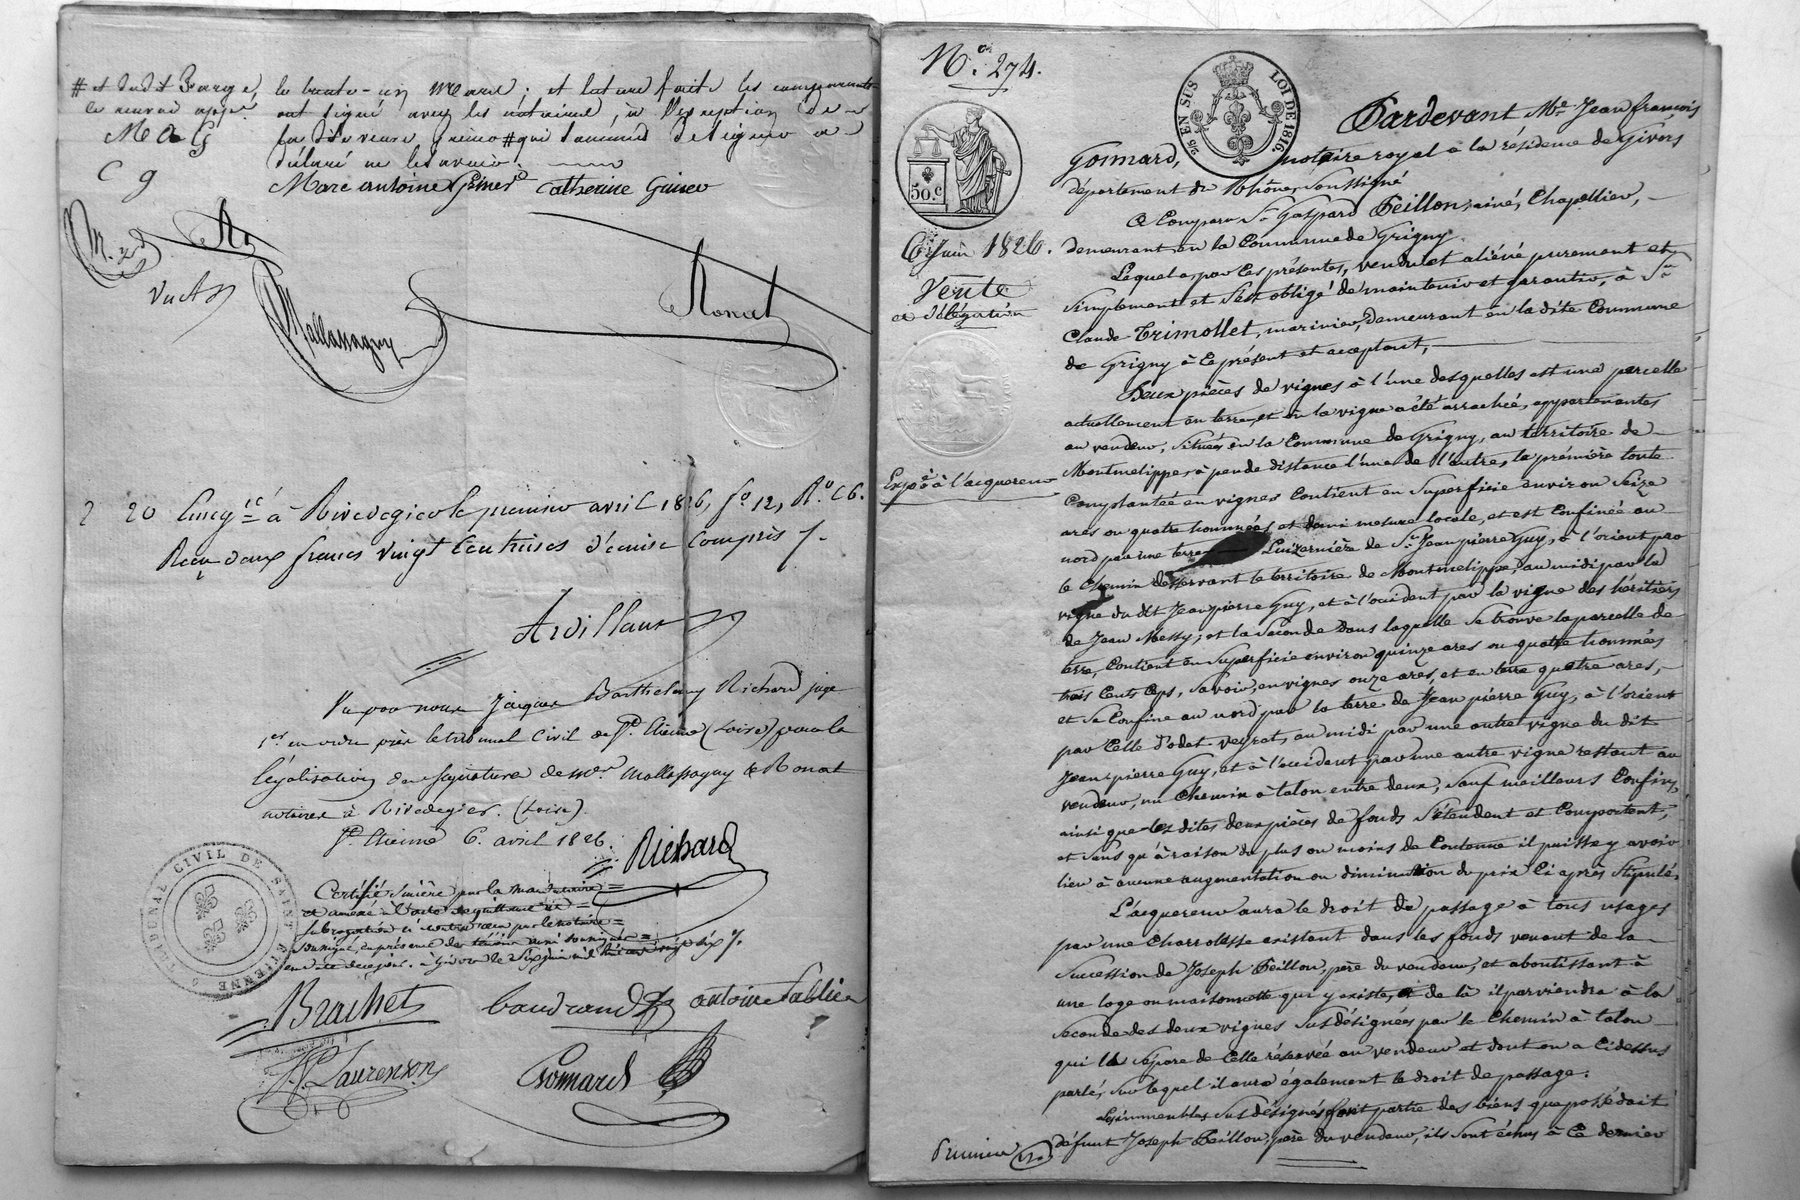 # et dudit Barge,
le renvoi appé.
M a G
C g
le trente-un Mars; et lecture faite les comparants
ont signé avec les notaires, à l'exception de
qui sommés de signer a
déclaré ne le savoir.
Marc antoine Gimer Catherine Guinev
Vu A
Mallassagny
Ronat
2 20 Enregré. à Rivedegier le premier avril 1826, fo. 12, Ro. C6.
Reçu deux francs vingt centimes dixime Compris
Ardillau
Vu par nous Jacques Barthelemy Richard juge
1er en ordre près le tribunal Civil de St. Etienne (Loire) pour la
légalisation des signatures de Mes. Mallassagny & Ronat
notaires à Rivedegier. (Loire).
St. Etienne 6. avril 1826.
Richard
TRIBUNAL CIVIL DE SAINT ETIENNE
Certifié sincère par la mandataire =
et annexé à l'acte de quittance et =
subrogation ci contre reçu par le notaire =
soussigné, en présence des témoins aussi soussignés =
en ce jour. à Givors le Six juin mil huit cent vingt six
Brachet baudrand antoine Sablier
Laurenson Gosnard
No. 274.
25 EN SUS LOI DE 1816.
50.c
6 Juin 1826.
Vente
et délégation
Expée. à l'acquereur
Pardevant Me. Jean françois
Gosnard, notaire royal à la résidence de Givors
département du Rhône, Soussigné
A Comparu Sr. Gaspard Peillon, ainé, Chapellier,
demeurant en la Commune de Grigny.
Lequel a, par les présentes, vendu et aliéné purement et
Simplement et s'est obligé de maintenir et garantir, à Sr.
Claude Trimollet, marinier, demeurant en la dite Commune
de Grigny à ce présent et acceptant,
Deux pièces de vignes à l'une desquelles est une parcelle
actuellement en terre, et où la vigne a été arrachée, appartenantes
au vendeur, situées en la Commune de Grigny, au territoire de
Montmelippe, à peu de distance l'une de l'autre, la première toute
Complantée en vignes Contient en Superficie environ Seize
ares ou quatre hommées et demi mesure locale, et est Confinée au
nord par une terre Luizernière de Sr. Jean pierre Guy, à l'orient par
le Chemin desservant le territoire de Montmelippe, au midi par la
vigne du dt Jean pierre Guy, et à l'occident par la vigne des héritiers
de Jean Messy; et la Seconde dans laquelle se trouve la parcelle de
terre, Contient en Superficie environ quinze ares ou quatre hommées
trois Cents Ceps, savoir, en vignes onze ares, et en terre quatre ares,
et se Confine au nord par la terre de Jean pierre Guy, à l'orient
par Celle d'odet veyrat, au midi par une autre vigne du dit
Jean-pierre Guy, et à l'occident par une autre vigne restant au
vendeur, un Chemin à talon entre deux, Sauf meilleurs Confins,
ainsi que les dites deux pièces de fonds S'étendent et Comportent,
et Sans qu'à raison du plus ou moins de Contenue il puisse y avoir
lieu à aucune augmentation ou diminution du prix Ci après Stipulé.
L'acquereur aura le droit de passage à tous usages
par une Charrolesse existant dans les fonds venant de la
Succession de Joseph Peillon, père du vendeur, et aboutissant à
une loge ou maisonnette qui y existe, et de là il parviendra à la
Seconde des deux vignes Susdésignées par le Chemin à talon
qui la sépare de Celle réservée au vendeur et dont on a Cidessus
parlé, sur lequel il aura également le droit de passage.
Les immeubles Susdésignés font partie des biens que possédait
défunt Joseph Peillon, père du vendeur, ils sont échus à Ce dernier